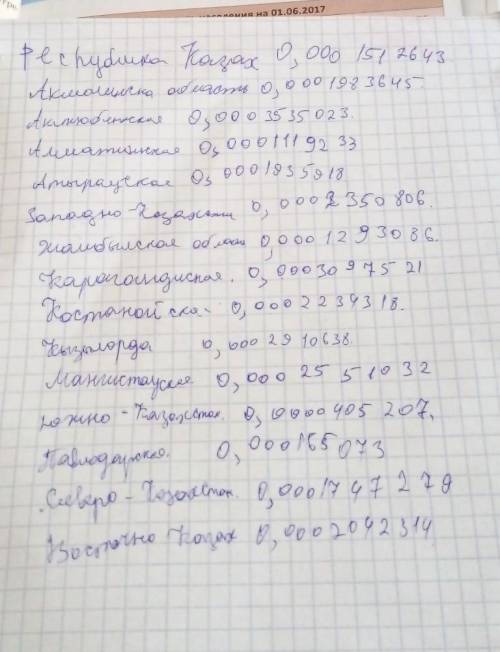 населения на 01.06.2017
Республика Казах 0,0001512643
Акмолинска область 0,0001983645.
Актюбинская 0,0003535023.
Алматинская 0,0001119233
Атырауская 0,0001935918
Западно-Казахстан 0,0002350806.
Жамбылская облась 0,0001293086.
Карагандиская. 0,0003097521
Костанойская 0,0002234318.
Кызылорда 0,0002910638.
Мангистауская 0,0002551032
Южно-Казахстан. 0,0000405207.
Павлодарская. 0,000165073
Северо-Казахстан. 0,0001747279
Восточно Казах 0,0002042314